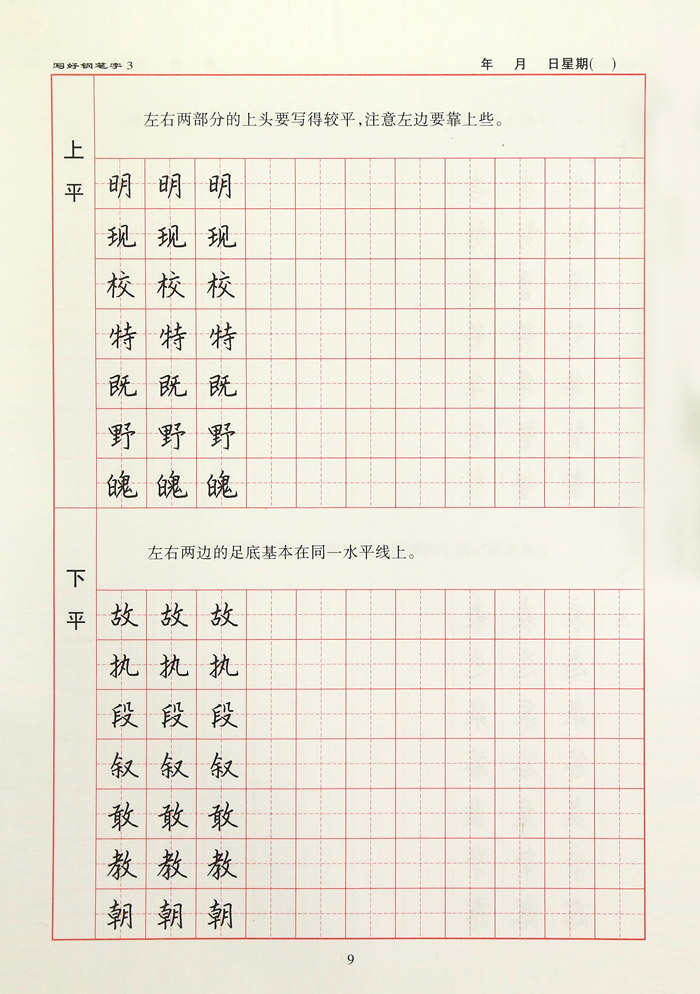 写好钢笔字 3
年 月 日星期( )
上平
左右两部分的上头要写得较平,注意左边要靠上些。
明 明 明
现 现 现
校 校 校
特 特 特
既 既 既
野 野 野
魄 魄 魄
下平
左右两边的足底基本在同一水平线上。
故 故 故
执 执 执
段 段 段
叙 叙 叙
敢 敢 敢
教 教 教
朝 朝 朝
9